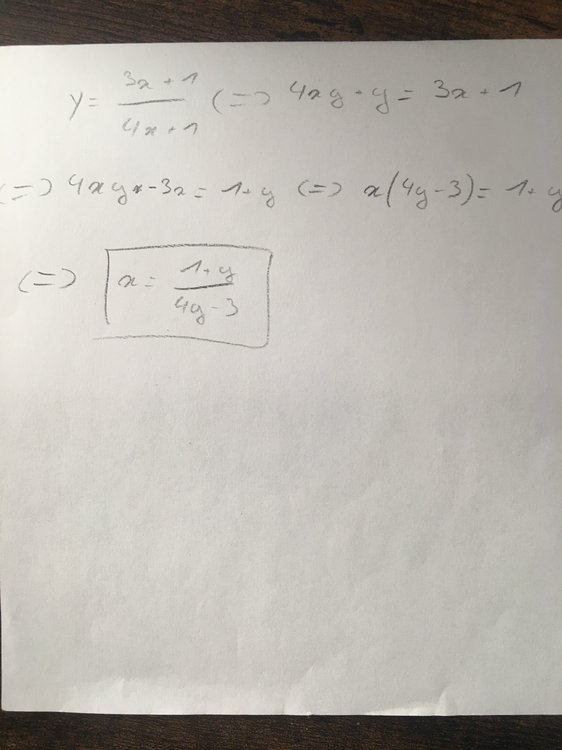 y = (3x + 1)/(4x + 1) (=) 4xy + y = 3x + 1
(=) 4xy - 3x = 1 + y (=) x(4y - 3) = 1 + y
(=) x = (1 + y)/(4y - 3)